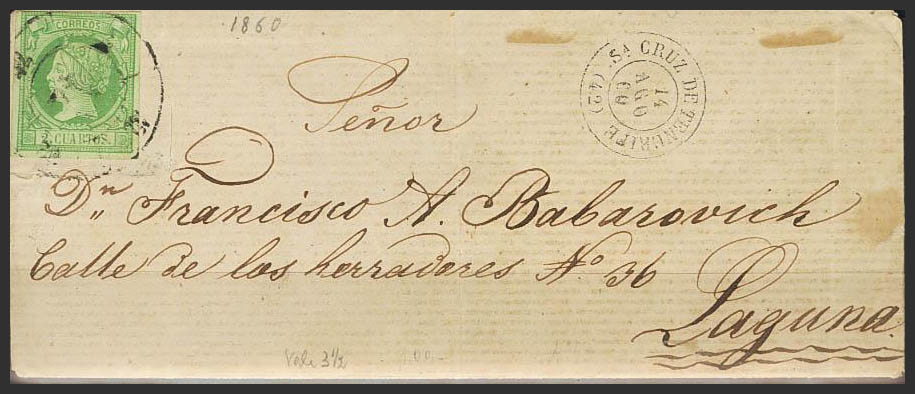 CORREOS
2 CUARTOS.
1860
Sᴬ CRUZ DE TENERIFE (42)
14
AGO
60
Señor
Dⁿ Francisco A. Babarovich
Calle de los herradores Nº 36
Laguna
3½